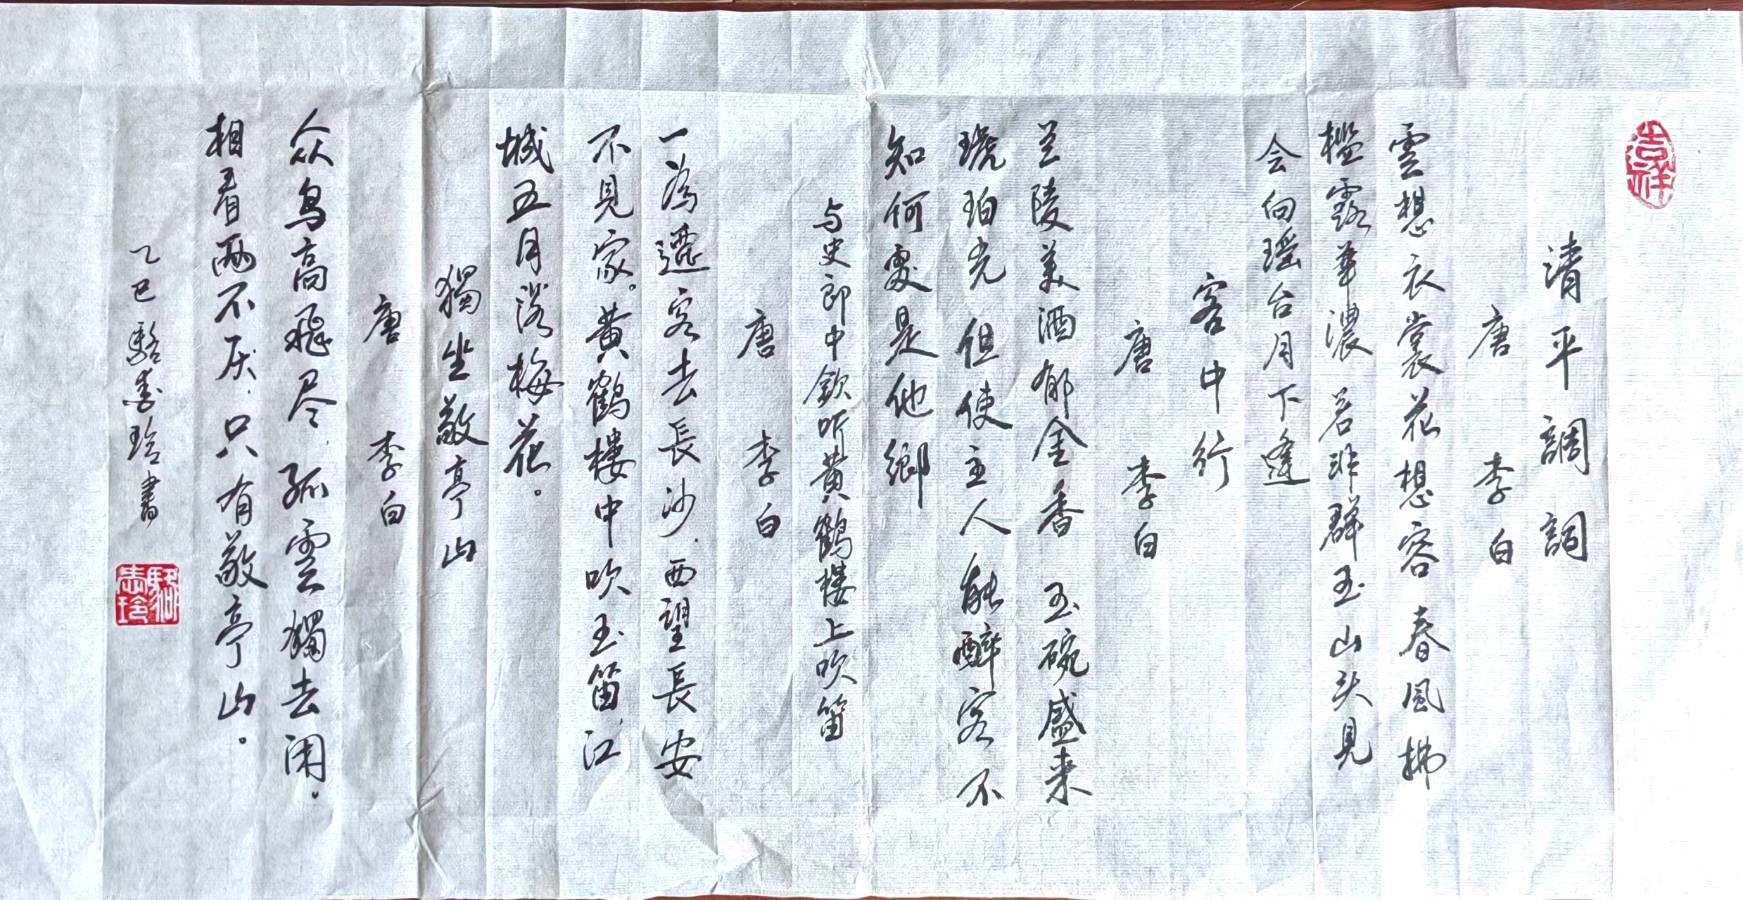 吉祥
清平調詞
唐 李白
雲想衣裳花想容春風拂
檻露華濃若非群玉山头見
会向瑶台月下逢
客中行
唐 李白
兰陵美酒郁金香 玉碗盛来
琥珀光 但使主人能醉客不
知何處是他鄉
与史郎中欽听黄鶴楼上吹笛
唐 李白
一為遷客去長沙，西望長安
不見家。黄鶴楼中吹玉笛，江
城五月落梅花。
獨坐敬亭山
唐 李白
众鸟高飛尽，孤雲獨去闲。
相看兩不厌，只有敬亭山。
乙巳 駱 玲書